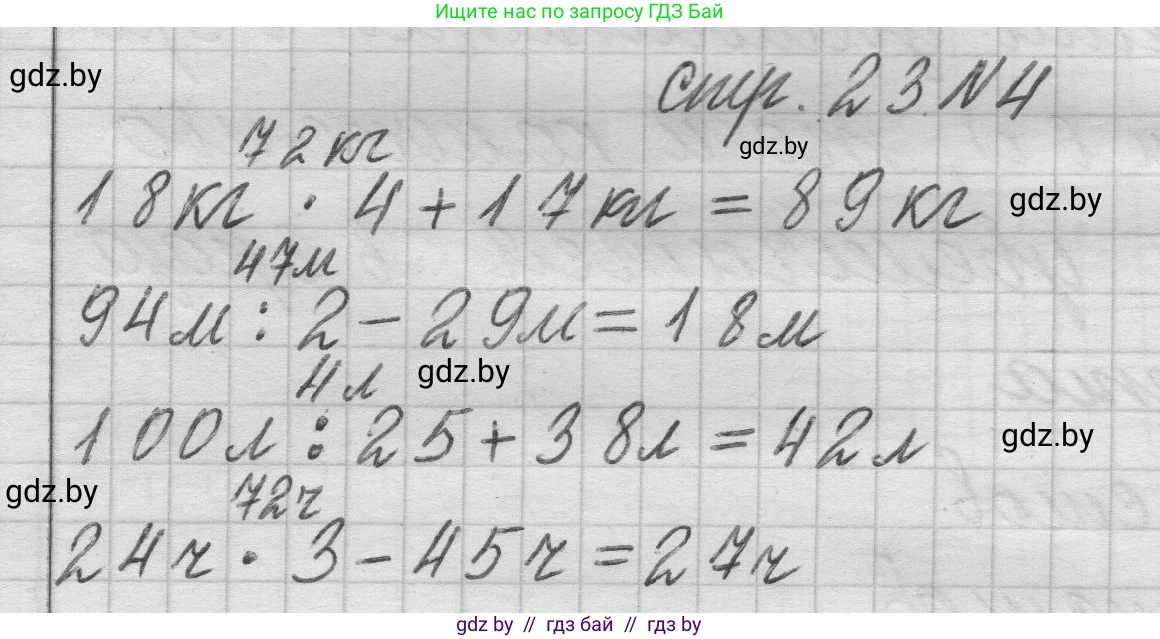 Ищите нас по запросу ГДЗ Бай
gdz.by
стр. 23 N 4
gdz.by
72 кг
18 кг · 4 + 17 кг = 89 кг
gdz.by
47 м
94 м : 2 - 29 м = 18 м
4 л
gdz.by
100 л : 25 + 38 л = 42 л
gdz.by
gdz.by
72 ч
24 ч · 3 - 45 ч = 27 ч
gdz by // гдз бай // гдз by